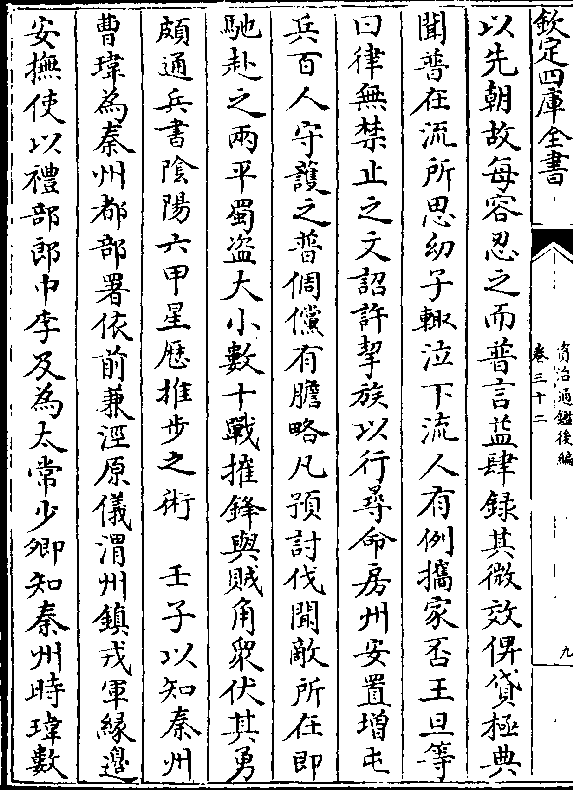 欽定四庫全書
資治通鑑後編
卷三十二
九
以先朝故每容忍之而普言益肆録其微效俾貸極典
聞普在流所思幼子輙泣下流人有例攜家否王旦等
曰律無禁止之文詔許挈族以行尋命房州安置增屯
兵百人守護之普倜儻有膽略凡預討伐聞敵所在即
馳赴之兩平蜀盗大小數十戰摧鋒與賊角衆伏其勇
頗通兵書陰陽六甲星厯推步之術　壬子以知秦州
曹瑋為秦州都部署依前兼涇原儀渭州鎮戎軍緣邉
安撫使以禮部郎中李及為太常少卿知秦州時瑋數